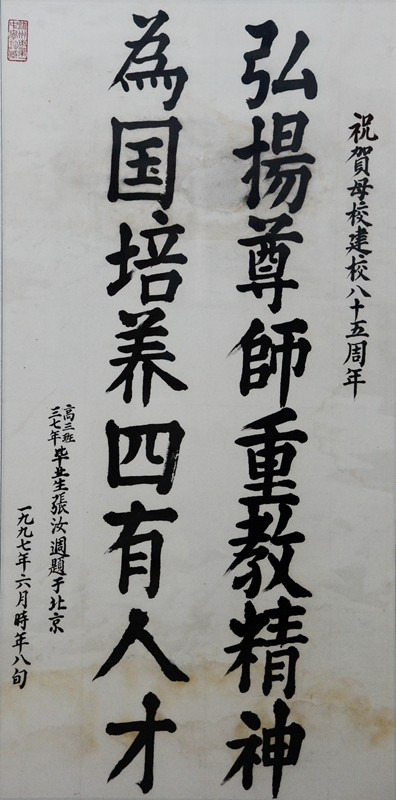 祝賀母校建校八十五周年
弘揚尊師重教精神
為国培养四有人才
高三班
三七年
毕业生張汝週題于北京
一九九七年六月時年八旬